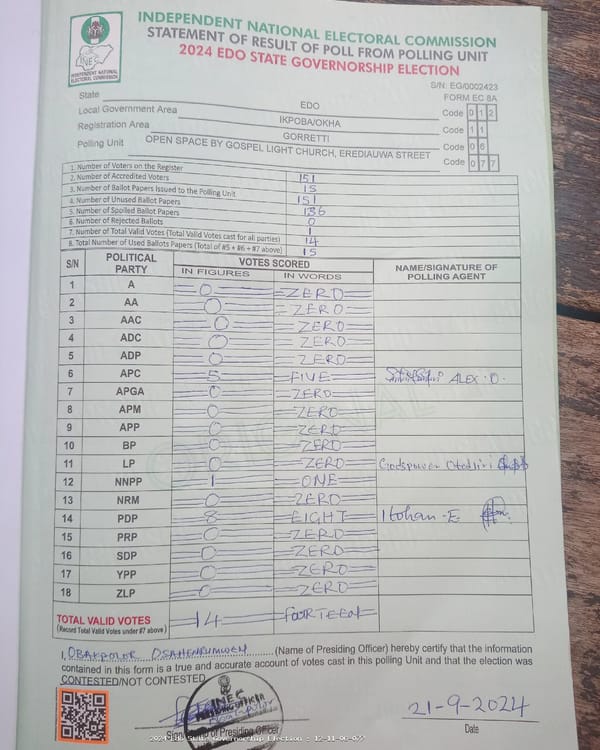 INDEPENDENT NATIONAL ELECTORAL COMMISSION
STATEMENT OF RESULT OF POLL FROM POLLING UNIT
2024 EDO STATE GOVERNORSHIP ELECTION
INEC
INDEPENDENT NATIONAL
ELECTORAL COMMISSION
S/N: EG/0002423
FORM EC 8A
State EDO Code 0 1 2
Local Government Area IKPOBA/OKHA Code 1 1
Registration Area GORRETTI Code 0 6
Polling Unit OPEN SPACE BY GOSPEL LIGHT CHURCH, EREDIAUWA STREET Code 0 7 7
1. Number of Voters on the Register 151
2. Number of Accredited Voters 15
3. Number of Ballot Papers Issued to the Polling Unit 151
4. Number of Unused Ballot Papers 136
5. Number of Spoiled Ballot Papers 0
6. Number of Rejected Ballots 1
7. Number of Total Valid Votes (Total Valid Votes cast for all parties) 14
8. Total Number of Used Ballots Papers (Total of #5 + #6 + #7 above) 15
S/N POLITICAL PARTY VOTES SCORED NAME/SIGNATURE OF POLLING AGENT
IN FIGURES IN WORDS
1 A 0 ZERO
2 AA 0 ZERO
3 AAC 0 ZERO
4 ADC 0 ZERO
5 ADP 0 ZERO
6 APC 5 FIVE ALEX .O.
7 APGA 0 ZERO
8 APM 0 ZERO
9 APP 0 ZERO
10 BP 0 ZERO
11 LP 0 ZERO Godspower
12 NNPP 1 ONE
13 NRM 0 ZERO
14 PDP 8 EIGHT Itohan .E
15 PRP 0 ZERO
16 SDP 0 ZERO
17 YPP 0 ZERO
18 ZLP 0 ZERO
TOTAL VALID VOTES 14 FOURTEEN
(Record Total Valid Votes under #7 above)
I, OSAHENRUMWEN (Name of Presiding Officer) hereby certify that the information
contained in this form is a true and accurate account of votes cast in this polling Unit and that the election was
CONTESTED/NOT CONTESTED.
INEC
21-9-2024
Signature of Presiding Officer Date
2024 Edo State Governorship Election : 12-11-06-077